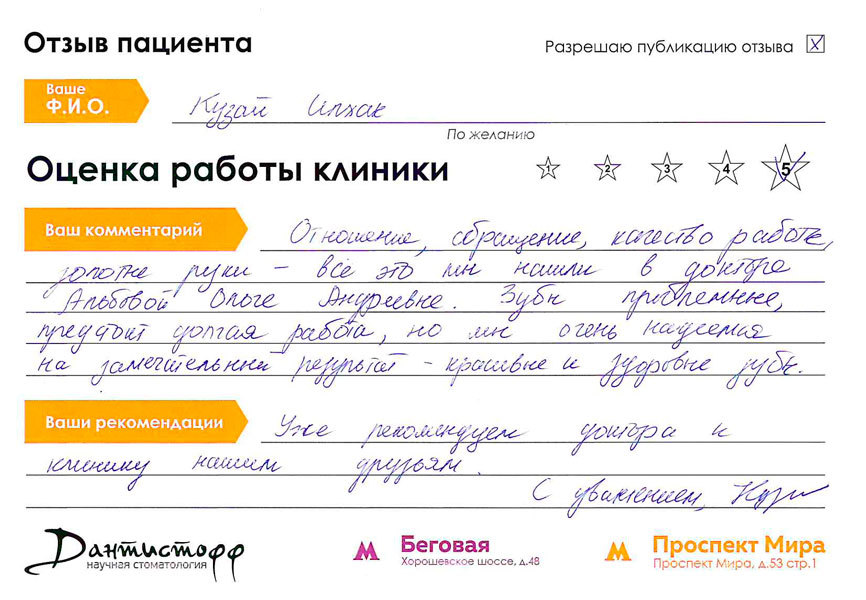 Отзыв пациента
Разрешаю публикацию отзыва
Ваше
Ф.И.О.
Кузай Илхак
По желанию
Оценка работы клиники
1 2 3 4 5
Ваш комментарий
Отношение, обращение, качество работы,
золотые руки – все это мы нашли в докторе
Альбовой Ольге Андреевне. Зубы проблемные,
предстоит долгая работа, но мы очень надеемся
на замечательный результат - красивые и здоровые зубы.
Ваши рекомендации
Уже рекомендуем доктора и
клинику нашим друзьям.
С уважением,
Дантистофф
научная стоматология
Беговая
Хорошевское шоссе, д.48
Проспект Мира
Проспект Мира, д.53 стр.1